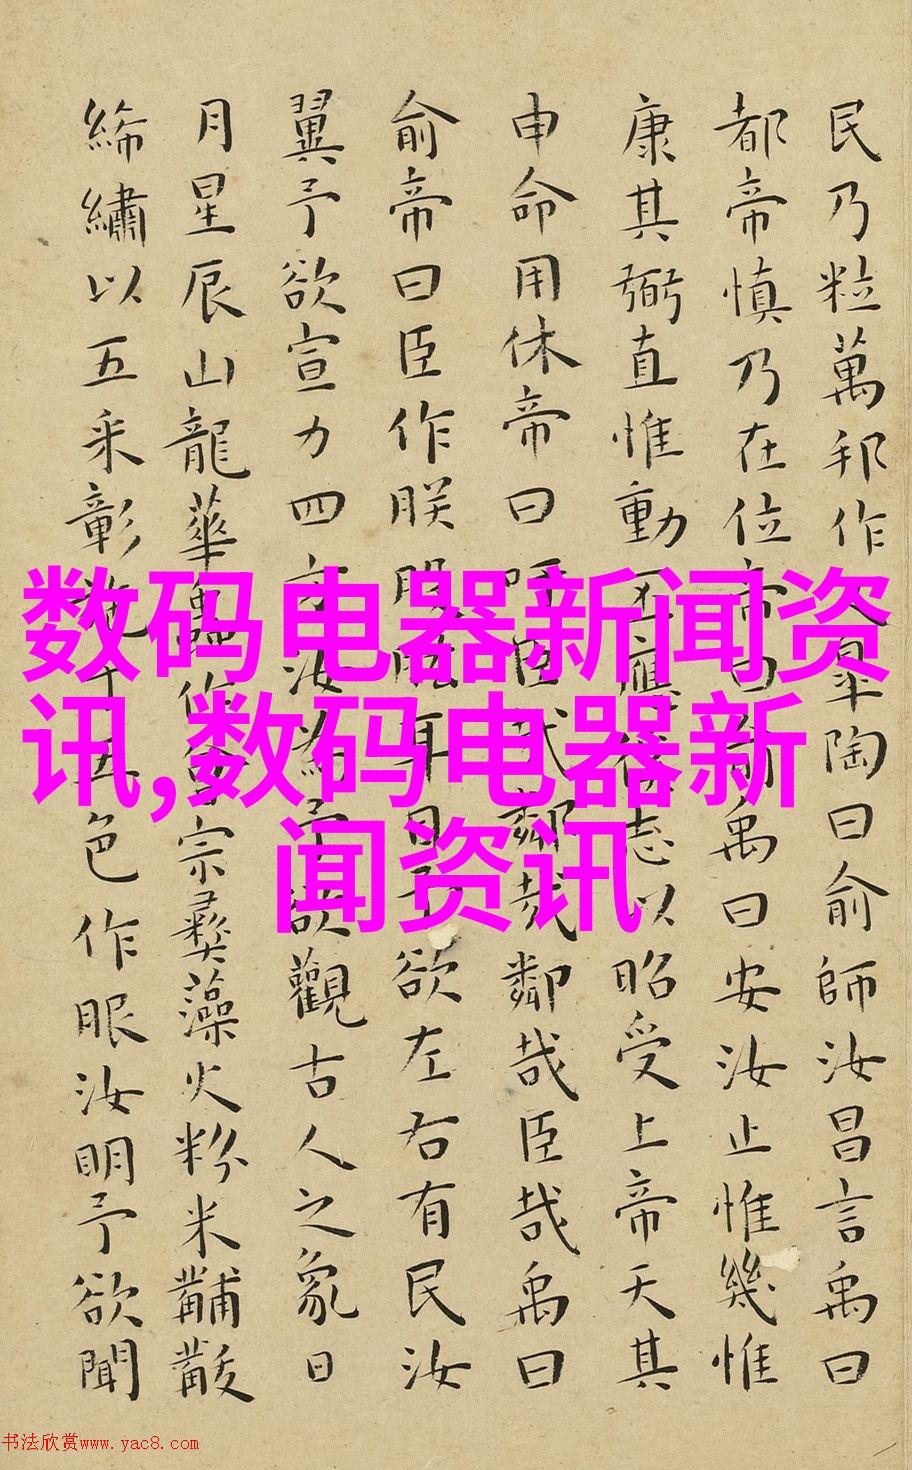 民乃粒萬邦作乂皐陶曰俞師汝昌言禹曰
都帝慎乃在位帝曰俞禹曰安汝止惟幾惟
康其弼直惟動丕應徯志以昭受上帝天其
申命用休帝曰吁臣哉鄰哉鄰哉臣哉禹曰
俞帝曰臣作朕股肱耳目予欲左右有民汝
翼予欲宣力四方汝為予欲觀古人之象日
月星辰山龍華蟲作會宗彝藻火粉米黼黻
絺繡以五采彰施于五色作服汝明予欲聞
数码电器新闻资
讯,数码电器新
闻资讯
书法欣赏www.yac8.com